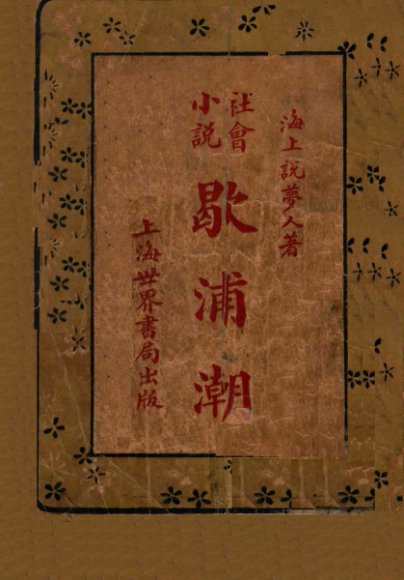 海上說夢人著
社會
小說
歇浦潮
上海世界書局出版